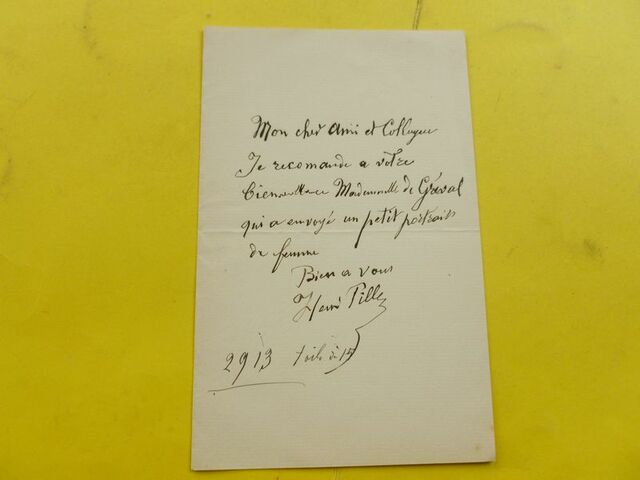 Mon cher Ami et Collegue
Je recomande a votre
bienveillance Mademoiselle de Gréval
qui a envoyé un petit portrait
de femme
Bien a vous
Henri Pille
2913 toile de 15